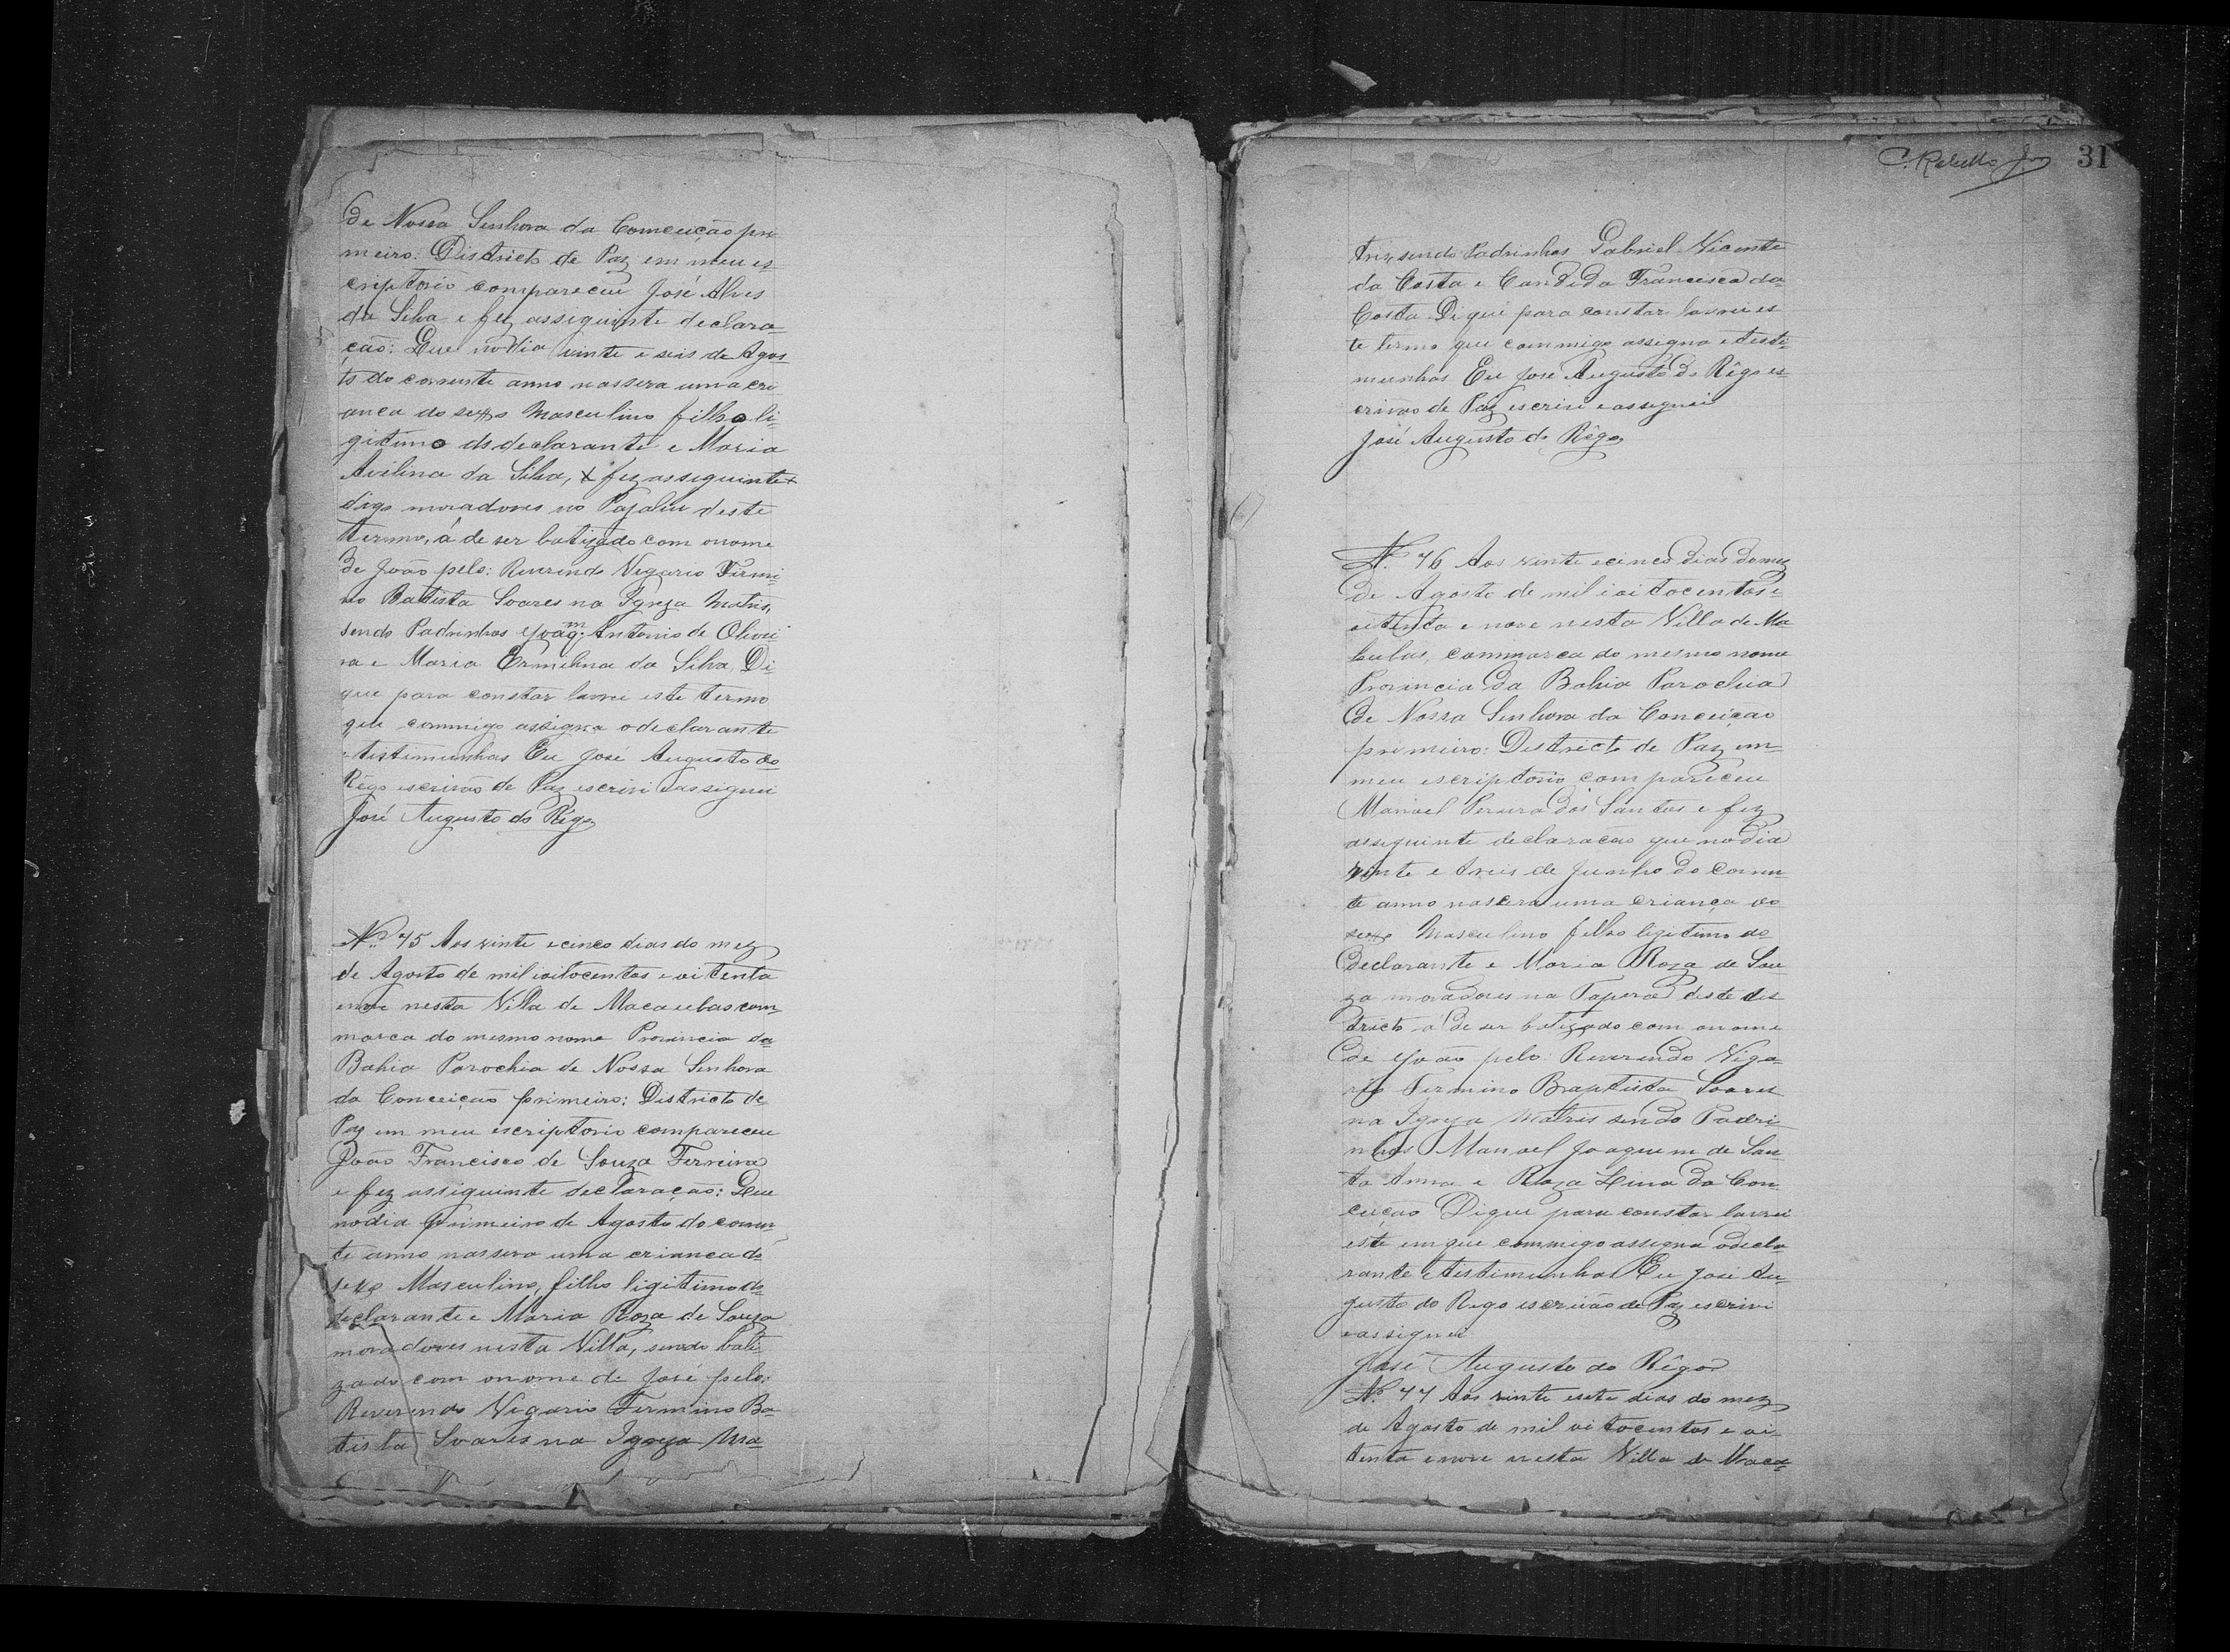 de Nossa Senhora da Conceição pri-
meiro: Districto de Paz em meu es-
criptorio compareceu José Alves
da Silva e fez asseguinte declara-
ção: Que no dia vinte e seis de Agos-
to do corrente anno nassera uma cri-
ança do sexo Masculino filho li-
gitimo do declarante e Maria
Avilina da Silva, x fez asseguinte x
digo moradores no Pajahu deste
termo, á de ser batizado com onome
de João pelo: Reverendo Vegario Firmi-
no Batista Soares na Igreja Matris,
sendo Padrinhos Joaqm. Antonio de Olivei-
ra e Maria Ermilina da Silva, Di-
que para constar lavrei este termo
que commigo assigna odeclarante
e testimunhas Eu José Augusto do
Rêgo escrivão de Paz escrivi e assignei
José Augusto do Rêgo
Nº 75 Aos vinte ecinco dias do mez
de Agosto de mil oitocentos e oitenta
enove nesta Villa de Macaubas com-
marca do mesmo nome Provincia da
Bahia Parochia de Nossa Senhora
da Conceição primeiro: Districto de
Paz em meu escriptorio compareceu
João Francisco de Souza Ferreira
e fez assiguinte declaração: Que
nodia primeiro de Agosto do corren-
te anno nassera uma crianca do
sexo Masculino, filho ligitimo do
declarante e Maria Roza de Souza
moradores nesta Villa, sendo bati-
zado com onome de José pelo:
Reverendo Vegario Fermino Ba-
tista Soares na Igreja Ma-
C. Rabello Jor 31
tris, sendo Padrinhos Gabriel Vicente
da Costa e Candida Francisca da
Costa Di que para constar lavrei es-
te termo que commigo assigna e testi-
munhas Eu José Augusto do Rêgo es-
crivão de Paz escrivi e assignei
José Augusto do Rêgo
Nº. 76 Aos vinte ecinco dias domez
de Agosto de mil ioitocentos e
oitenta e nove nesta Villa de Ma-
caubas, commarca do mesmo nome
Provincia da Bahia Parochia
de Nossa Senhora da Conceiçao
primeiro: Districto de Paz em
meu escriptorio compareceu
Manoel Pereira dos Santos e fez
asseguinte declaracão que nodia
vinte e treis de Junho do corren-
te anno nascera uma criança do
sexo Masculino filho ligitimo do
declarante e Maria Roza de Sou-
za moradores na Tapera deste dis-
tricto á de ser batizado com onome
de João pelo: Reverendo Viga-
rio Fermino Baptista Soares
na Igreja Matris sendo Padri-
nhos Manoel Joaquim de San-
ta Anna e Roza Lina da Con-
ceição Di que para constar lavrei
este em que commigo assigna odecla-
rante e testimunhas Eu José Au-
gusto do Rego escrivão de Paz escrivi
eassignei
José Augusto do Rêgo
Nº. 77 Aos vinte esete dias do mez
de Agosto de mil oitocentos e oi-
tenta enove nesta Villa de Maca-